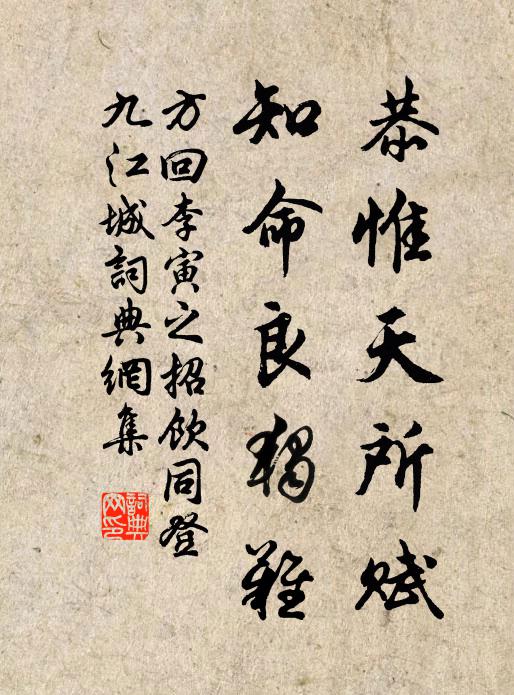 恭惟天所賦
知命良獨難
方回李寅之招飲同登
九江城詞典網集
詞典
网印